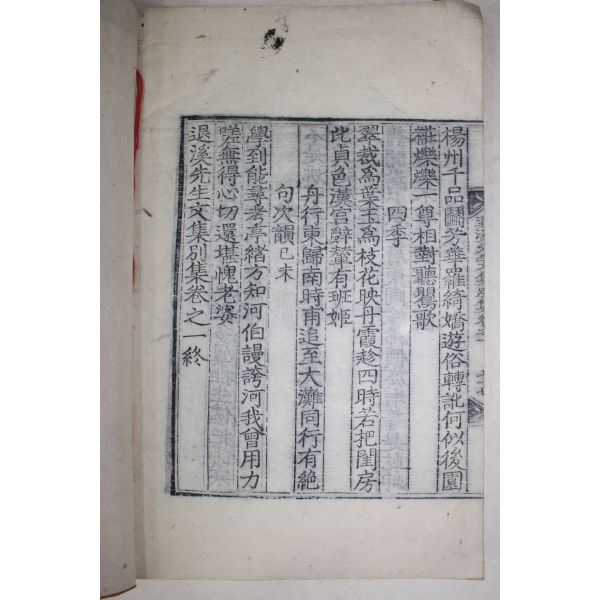 楊州千品鬪芳華羅綺嬌遊俗轉訛何似後園
罇爍爍一尊相對聽鶯歌
四季
翠裁爲葉玉爲枝花映丹霞趁四時若把閨房
比貞色漢宮辭輦有班姬
丹行東歸南時甫追至大灘同行有絶
句次韻己未
學到能尋考亭緖方知河伯謾誇河我曾用力
嗟無得心切還堪愧老婆
退溪先生文集別集卷之一終